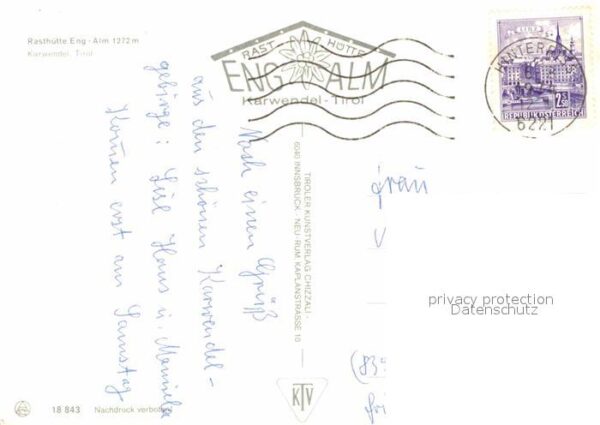 Rasthütte Eng - Alm 1272 m
Karwendel, Tirol
RAST HÜTTE
ENG ALM
Karwendel-Tirol
LINZ
2.50
REPUBLIK ÖSTERREICH
6221
Noch einen Grüß
aus den schönen Karwendel-
gebirge: Lisl Hans u. Manuela
Kommen erst am Samstag
TIROLER KUNSTVERLAG CHIZZALI -
6040 INNSBRUCK - NEU-RUM, KAPLANSTRASSE 10
Frau
privacy protection
Datenschutz
KTV
18 843 Nachdruck verboten